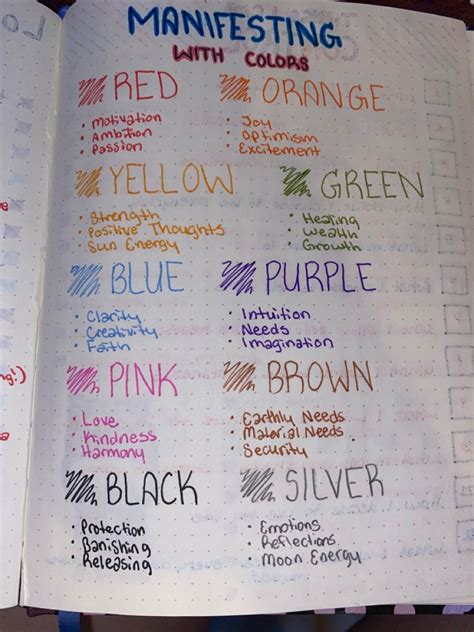 MANIFESTING
WITH COLORS
RED
• Motivation
• Ambition
• Passion
ORANGE
• Joy
• Optimism
• Excitement
YELLOW
• Strength
• Positive Thoughts
• Sun Energy
GREEN
• Healing
• Wealth
• Growth
BLUE
• Clarity
• Creativity
• Faith
PURPLE
• Intuition
• Needs
• Imagination
PINK
• Love
• Kindness
• Harmony
BROWN
• Earthly Needs
• Material Needs
• Security
BLACK
• Protection
• Banishing
• Releasing
SILVER
• Emotions
• Reflections
• Moon Energy